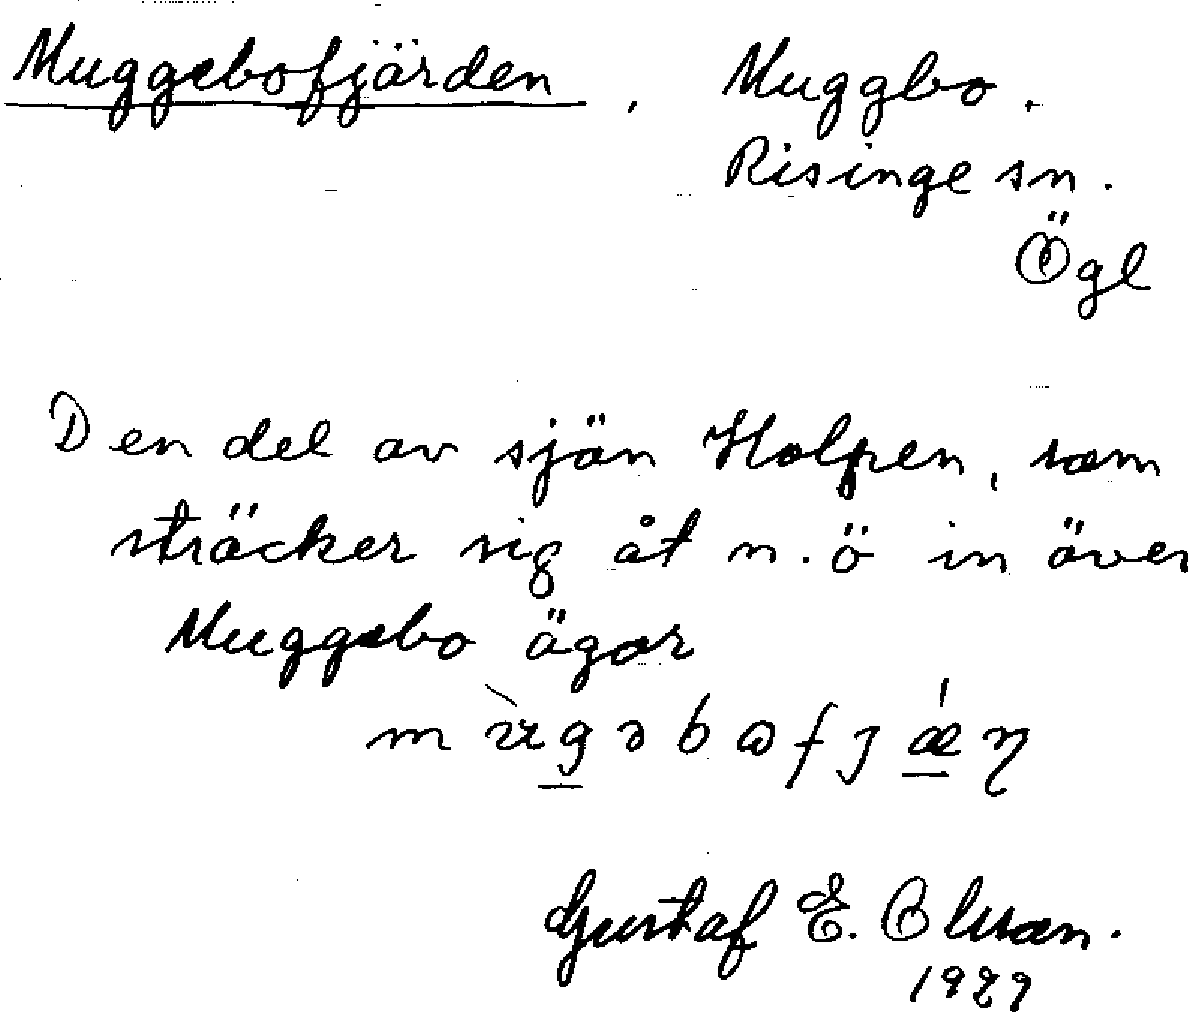 Muggebofjärden, Muggbo.
Risinge sn.
Ögl
Den del av sjön Holpen, som
sträcker sig åt n.ö in över
Muggebo ägor
Gustaf E. Olsson.
1929